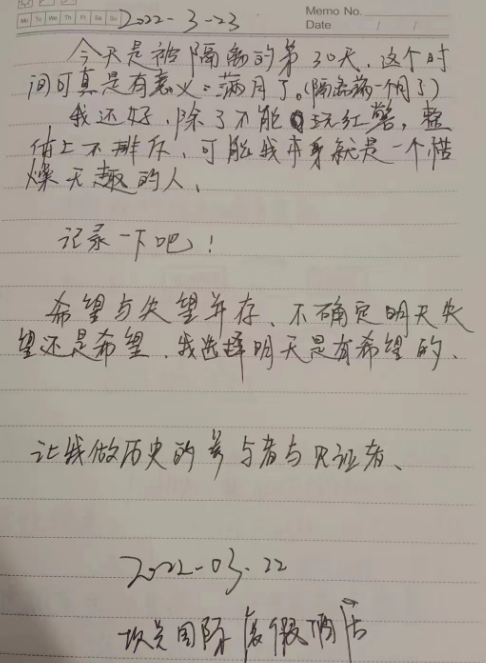 Mo Tu We Th Fr Sa Su
Memo No.
Date / /
2022-3-23
今天是被隔离的第30天，这个时
间可真是有意义：满月了。(隔离满一个月了)
我还好，除了不能玩红警，整
体上不排斥，可能我本身就是一个枯
燥无趣的人、
记录一下吧！
希望与失望并存、不确定明天失
望还是希望、我选择明天是有希望的、
让我做历史的参与者与见证者、
2022-03.22
国际度假酒店